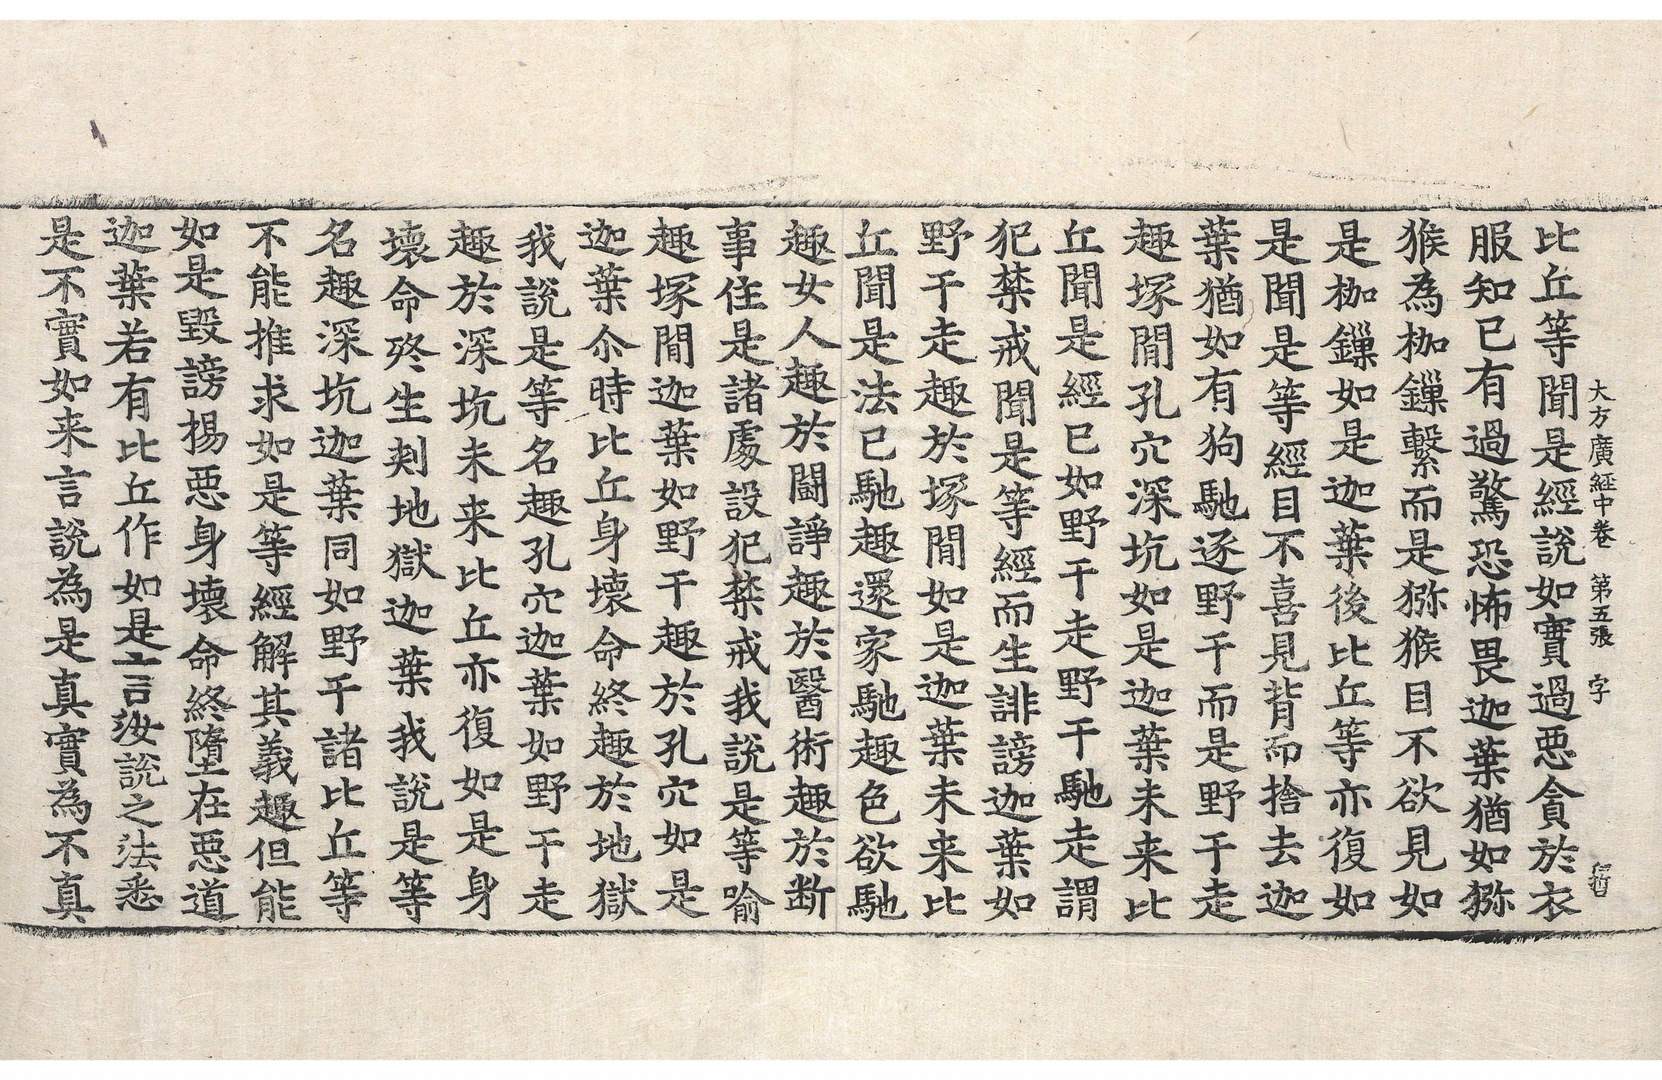 大方廣経中卷　第五張　字
比丘等聞是經說如實過惡貪於衣
服知已有過驚恐怖畏迦葉猶如猕
猴為枷鏁繫而是猕猴目不欲見如
是枷鏁如是迦葉後比丘等亦復如
是聞是等經目不喜見背而捨去迦
葉猶如有狗馳逐野干而是野干走
趣塚間孔穴深坑如是迦葉未来比
丘聞是經已如野干走野干馳走謂
犯禁戒聞是等經而生誹謗迦葉如
野干走趣於塚間如是迦葉未来比
丘聞是法已馳趣還家馳趣色欲馳
趣女人趣於鬪諍趣於醫術趣於断
事住是諸處設犯禁戒我說是等喻
趣塚間迦葉如野干趣於孔穴如是
迦葉尒時比丘身壞命終趣於地獄
我說是等名趣孔穴迦葉如野干走
趣於深坑未来比丘亦復如是身
壞命終生剡地獄迦葉我說是等
名趣深坑迦葉同如野干諸比丘等
不能推求如是等經解其義趣但能
如是毀謗揚惡身壞命終墮在惡道
迦葉若有比丘作如是言汝說之法悉
是不實如来言說為是真實為不真